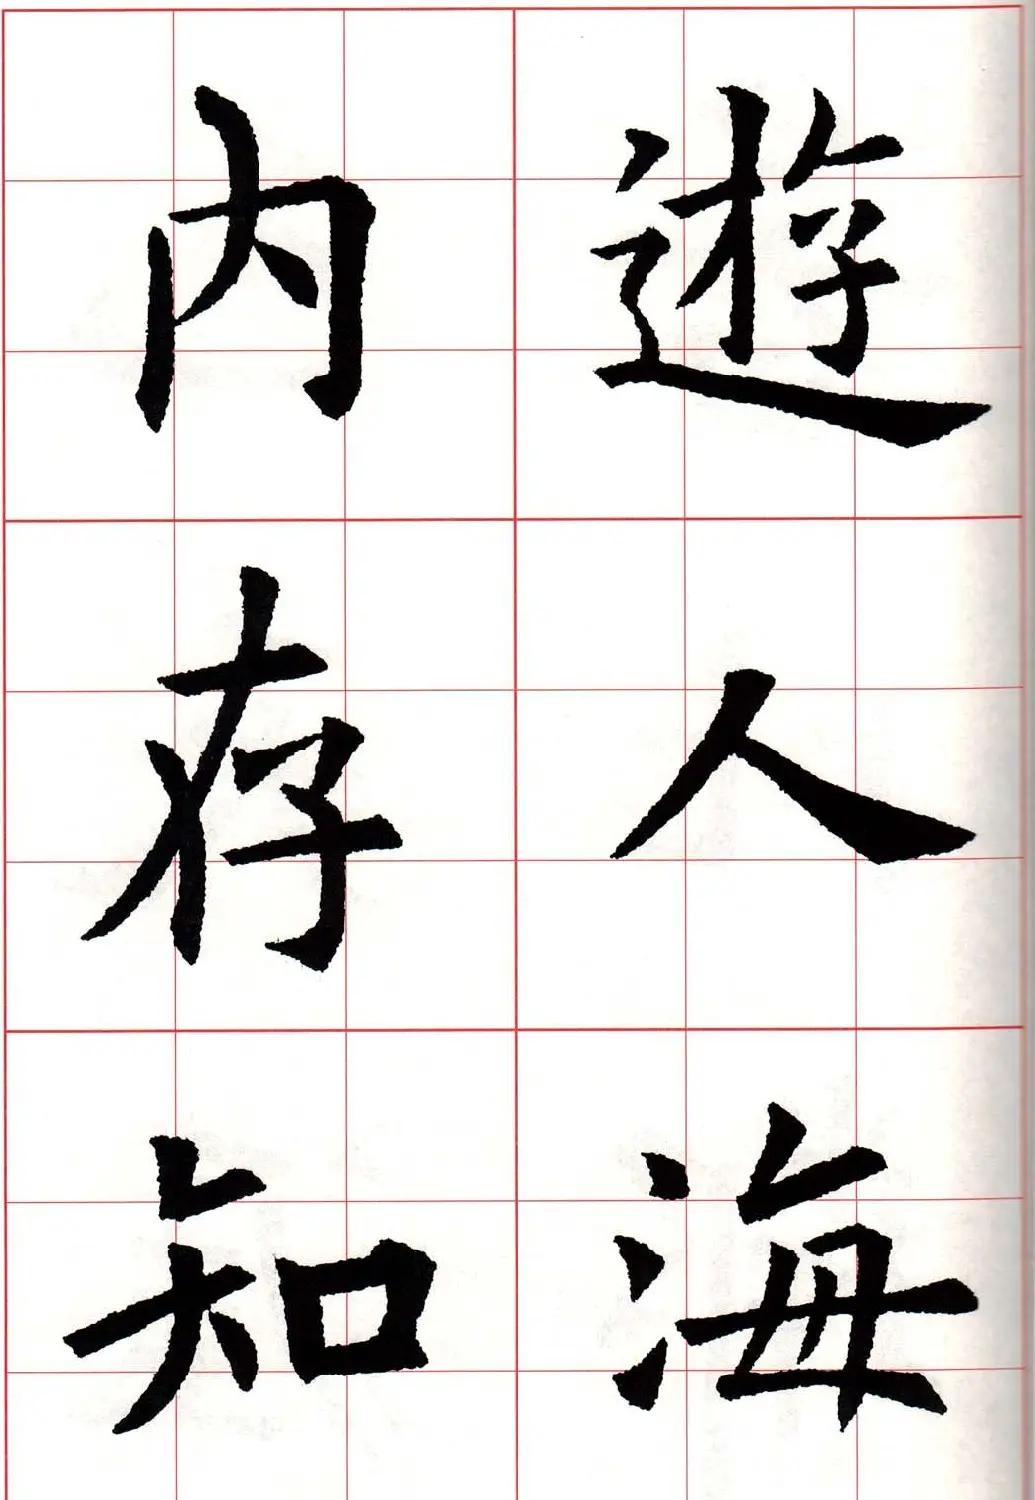 遊人海
内存知